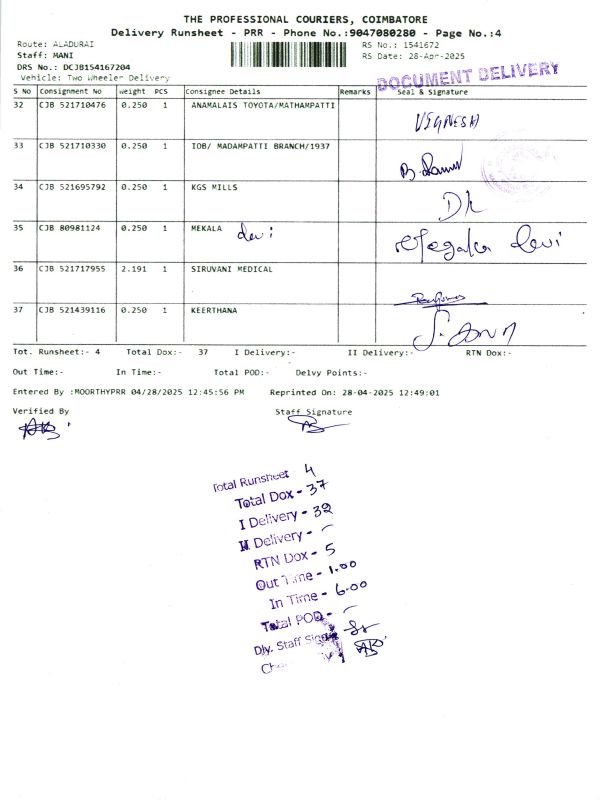 THE PROFESSIONAL COURIERS, COIMBATORE
Delivery Runsheet - PRR - Phone No.:9047080280 - Page No.:4
Route: ALADURAI RS No.: 1541672
Staff: MANI RS Date: 28-Apr-2025
DRS No.: DCJB154167204
Vehicle: Two Wheeler Delivery
DOCUMENT DELIVERY
S No Consignment No Weight PCS Consignee Details Remarks Seal & Signature
32 CJB 521710476 0.250 1 ANAMALAIS TOYOTA/MATHAMPATTI VIGNESH
33 CJB 521710330 0.250 1 IOB/ MADAMPATTI BRANCH/1937
34 CJB 521695792 0.250 1 KGS MILLS
35 CJB 80981124 0.250 1 MEKALA devi devi
36 CJB 521717955 2.191 1 SIRUVANI MEDICAL
37 CJB 521439116 0.250 1 KEERTHANA
Tot. Runsheet:- 4 Total Dox:- 37 I Delivery:- II Delivery:- RTN Dox:-
Out Time:- In Time:- Total POD:- Delvy Points:-
Entered By :MOORTHYPRR 04/28/2025 12:45:56 PM Reprinted On: 28-04-2025 12:49:01
Verified By Staff Signature
Total Runsheet 4
Total Dox - 37
I Delivery - 32
II Delivery - -
RTN Dox - 5
Out Time - 1.00
In Time - 6.00
Total POD - -
Dly. Staff Sign